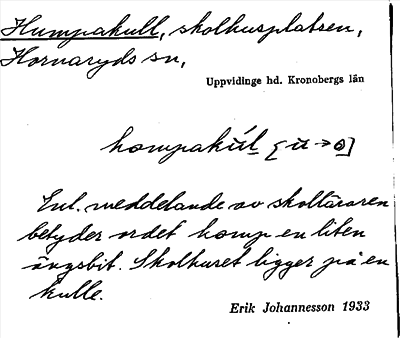 Humpakull, skolhusplatsen,
Hornaryds sn,
Uppvidinge hd. Kronobergs län
Enl. meddelande av skolläraren
betyder ordet homp en liten
ängsbit. Skolhuset ligger på en
kulle.
Erik Johannesson 1933